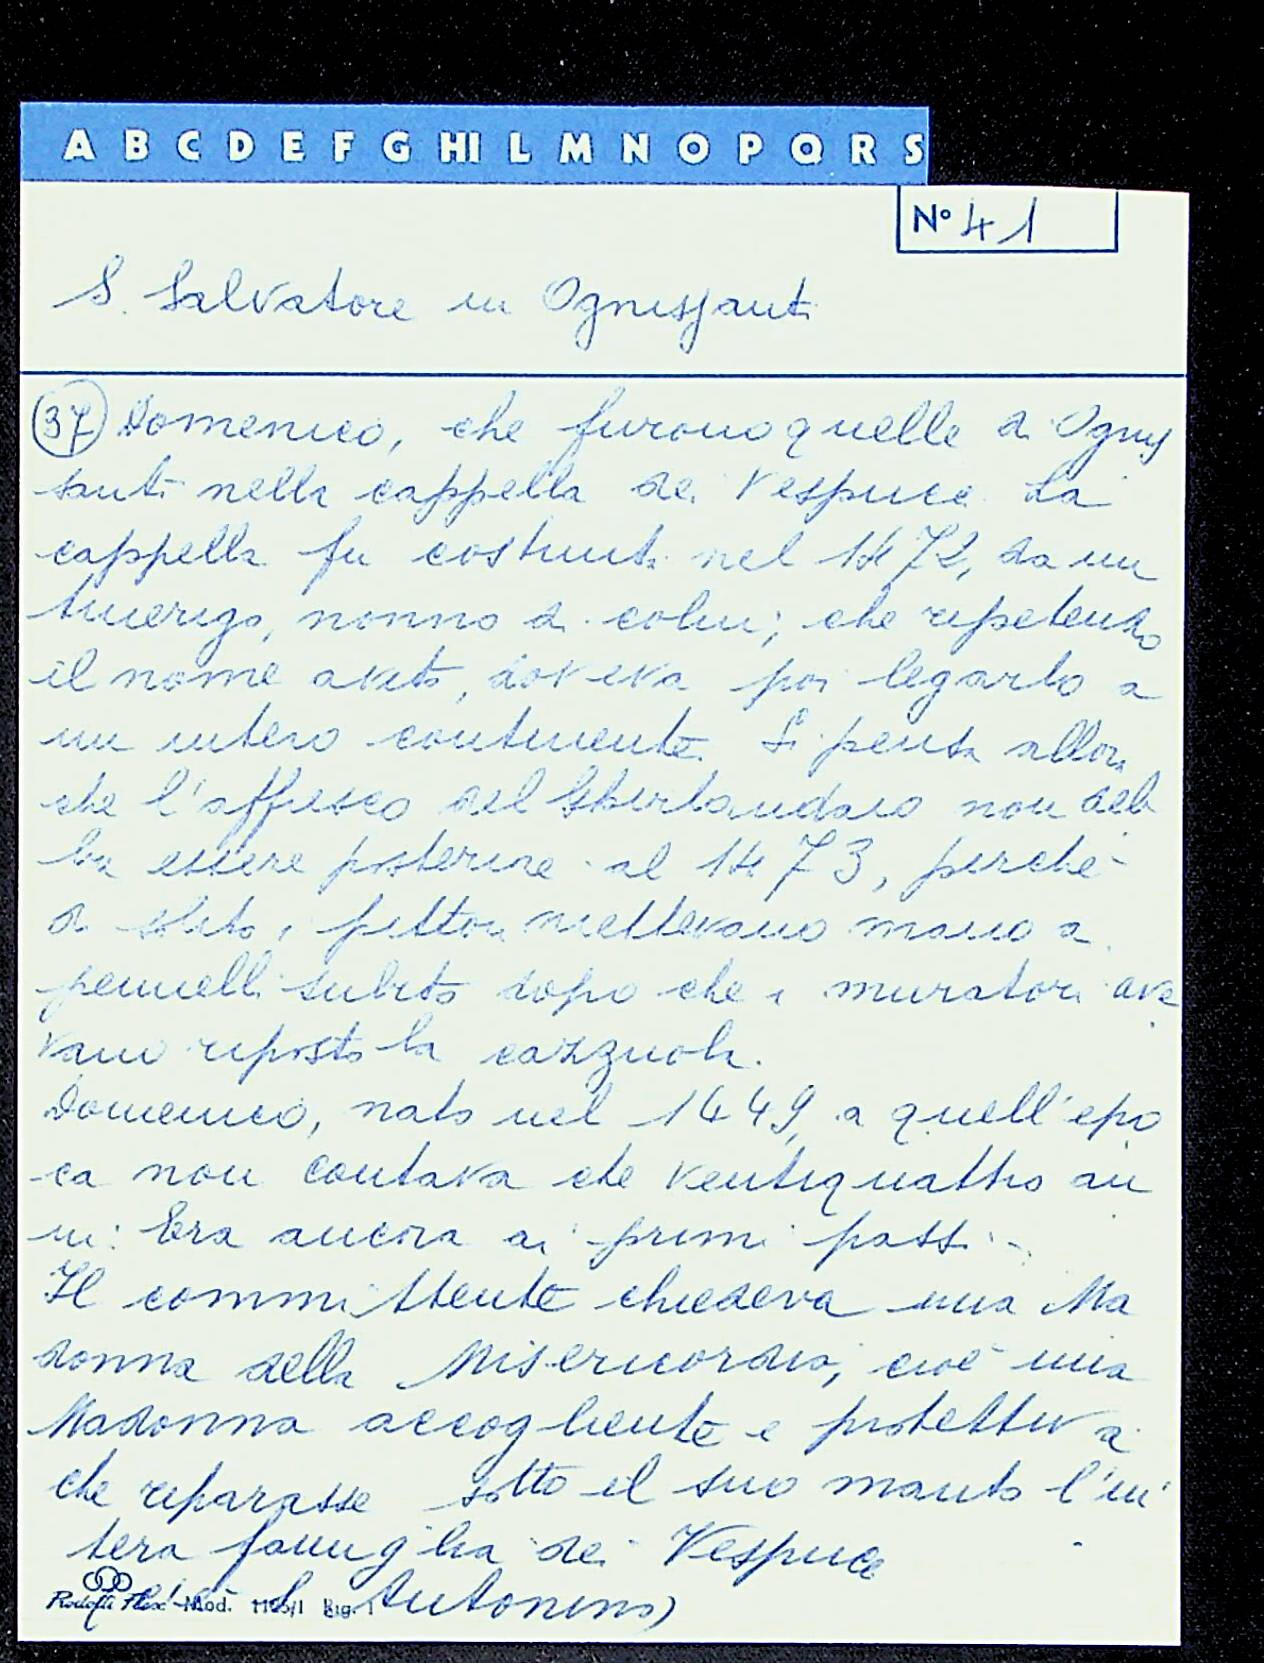 A B C D E F G HI L M N O P Q R S
N° 41
S. Salvatore in Ognissanti
37 Domenico, che furono quelle di Ognis
santi nella cappella dei Vespucci La
cappella fu costruita nel 1472, da un
Amerigo, nonno di colui, che ripetendo
il nome avito, doveva poi legarlo a
un intero continente. Si pensa allora
che l'affresco del Ghirlandaio non deb
ba essere posteriore al 1473, perché
di solito i pittori mettevano mano ai
pennelli subito dopo che i muratori ave
vano riposto la cazzuola.
Domenico, nato nel 1449, a quell'epo
ca non contava che ventiquattro an
ni: Era ancora ai primi passi..
Il committente chiedeva una Ma
donna della Misericordia, cioè una
Madonna accogliente e protettiva
che riparasse sotto il suo manto l'in
tera famiglia dei Vespucci
S. Antonino)
Mod.